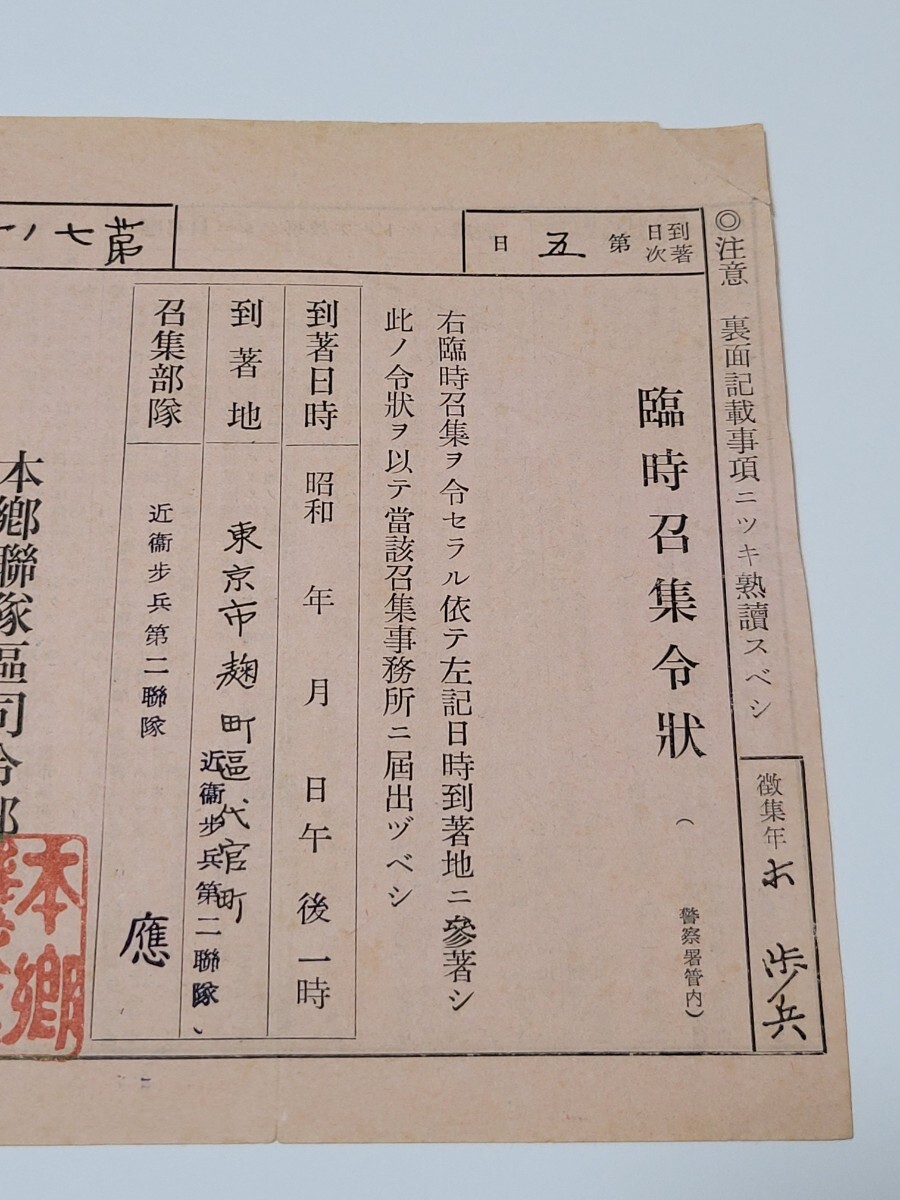 ◎注意 裏面記載事項ニツキ熟讀スベシ
徴集年
歩兵
到著日次 第五日
臨時召集令狀
（ 警察署管内）
右臨時召集ヲ令セラル依テ左記日時到著地ニ參著シ
此ノ令狀ヲ以テ當該召集事務所ニ屆出ヅベシ
到著日時 昭和 年 月 日午後一時
到著地 東京市麹町區代官町
近衞步兵第二聯隊
召集部隊 近衞步兵第二聯隊
應
第七ノ
本鄕聯隊區司令部
本鄕